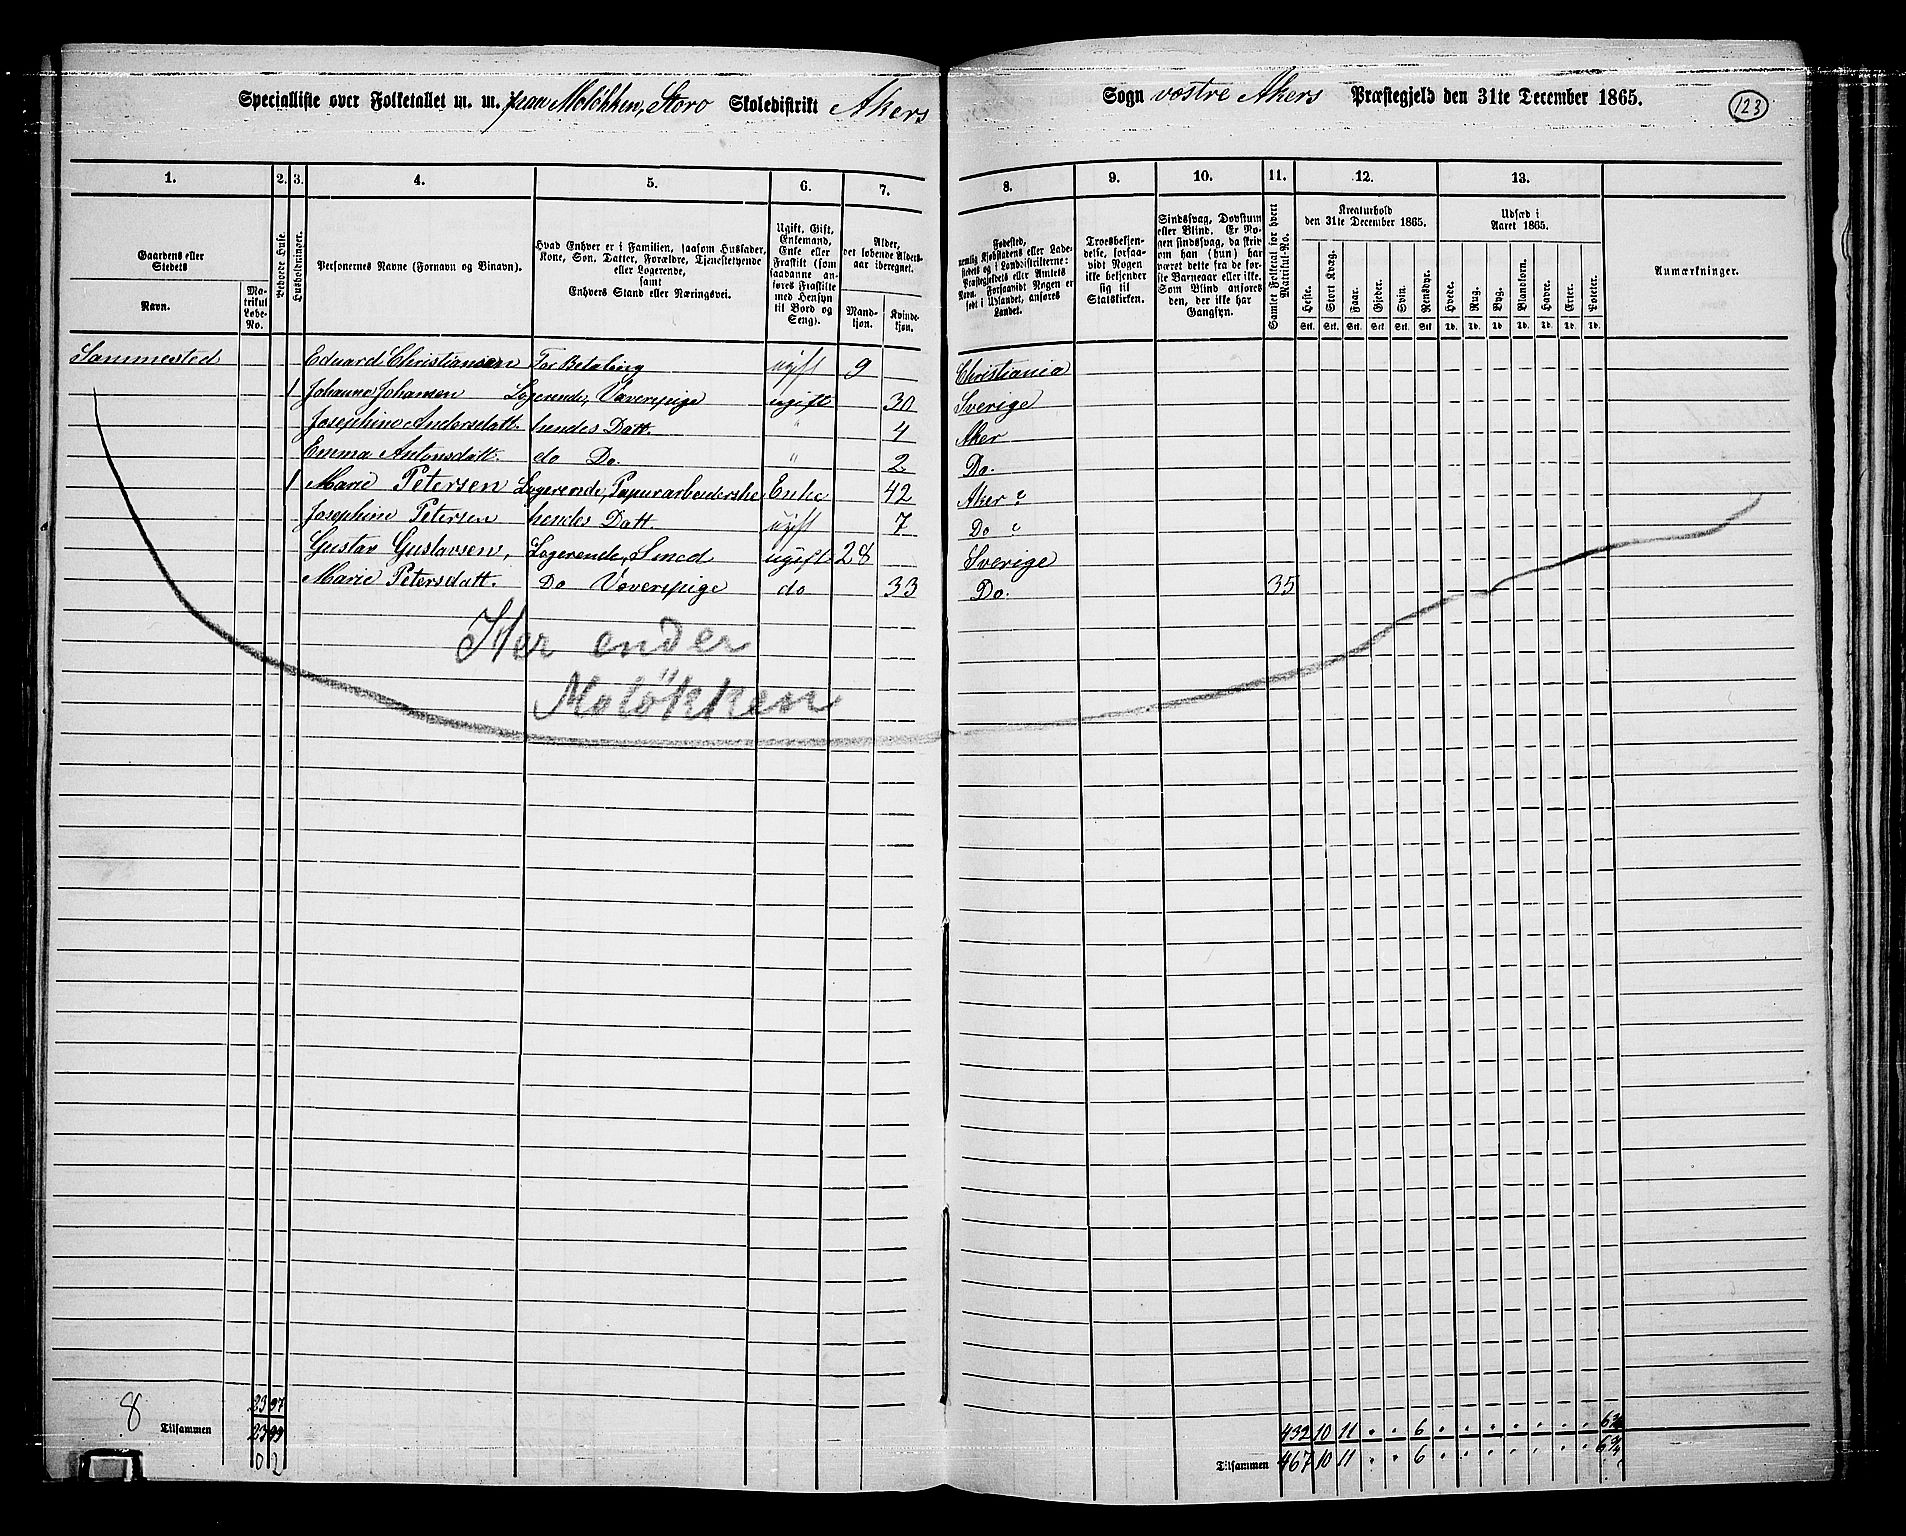 Specialliste over Folketallet m. m. paa Moløkken, Storo Skoledistrikt Akers Sogn vestre Akers Præstegjeld den 31te December 1865.
123
1. 2. 3. 4. 5. 6. 7. 8. 9. 10. 11. 12. 13.
Gaardens eller Stedets
Navn.
Matrikul Løbe-No.
Beboede Huse.
Husholdninger.
Personernes Navne (Fornavn og Binavn).
Hvad Enhver er i Familien, saasom Husfader,
Kone, Søn, Datter, Forældre, Tjenestetyende
eller Logerende,
samt
Enhvers Stand eller Næringsvei.
Ugift, Gift,
Enkemand,
Enke eller
Fraskilt (som
saadanne an-
føres Fraskilte
med Hensyn
til Bord og
Seng).
Alder,
det løbende Alders-
aar iberegnet.
Mand-
kjøn.
Kvinde-
kjøn.
Fødested,
nemlig Kjøbstadens eller Lade-
stedets og i Landdistrikterne:
Præstegjeldets eller Amtets
Navn. Forsaavidt Nogen er
født i Udlandet, anføres
Landet.
Troesbekjen-
delse, forsaa-
vidt Nogen
ikke bekjender
sig til
Statskirken.
Sindssvag, Døvstum
eller Blind. Er No-
gen sindssvag, da skriv
om dette han (hun) har
været dette fra de før-
ste Barneaar eller ikke.
Som Blind anføres
den, der ikke har
Gangsyn.
Samlet Folketal for hvert
Matrikul-No.
Kreaturhold
den 31te December 1865.
Heste. Stort Kvæg. Faar. Gjeder. Svin. Rensdyr.
Stk. Stk. Stk. Stk. Stk. Stk.
Udsæd i
Aaret 1865.
Hvede. Rug. Byg. Blandkorn. Havre. Erter. Poteter.
Td. Td. Td. Td. Td. Td. Td.
Anmærkninger.
Sammested Eduard Christiansen For Betaling ugift 9 Christiania
1 Johanne Johansen Logerende, Væverpige ugift 30 Sverige
Josephine Andersdatt. hendes Datt. " 4 Aker
Emma Antonsdatt. do Do. " 2 Do.
1 Marie Petersen Logerende, Papirarbeiderske Enke 42 Aker ?
Josephine Petersen hendes Datt. ugift 7 Do ?
Gustav Gustavsen, Logerende, Smed ugift 28 Sverige
Marie Petersdatt. Do Væverpige do 33 Do. 35
Her ender
Moløkken
8
23 97
Tilsammen 23 99
0 2
432 10 11 . . 6 . . . . . . 6¾
Tilsammen 467 10 11 . . 6 . . . . . . 6¾